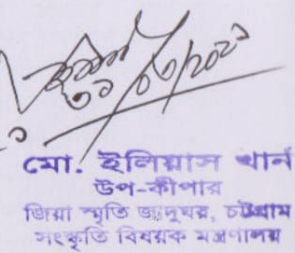 ৩১/০৮/২০২১
মো. ইলিয়াস খান
উপ-কীপার
জিয়া স্মৃতি জাদুঘর, চট্টগ্রাম
সংস্কৃতি বিষয়ক মন্ত্রণালয়